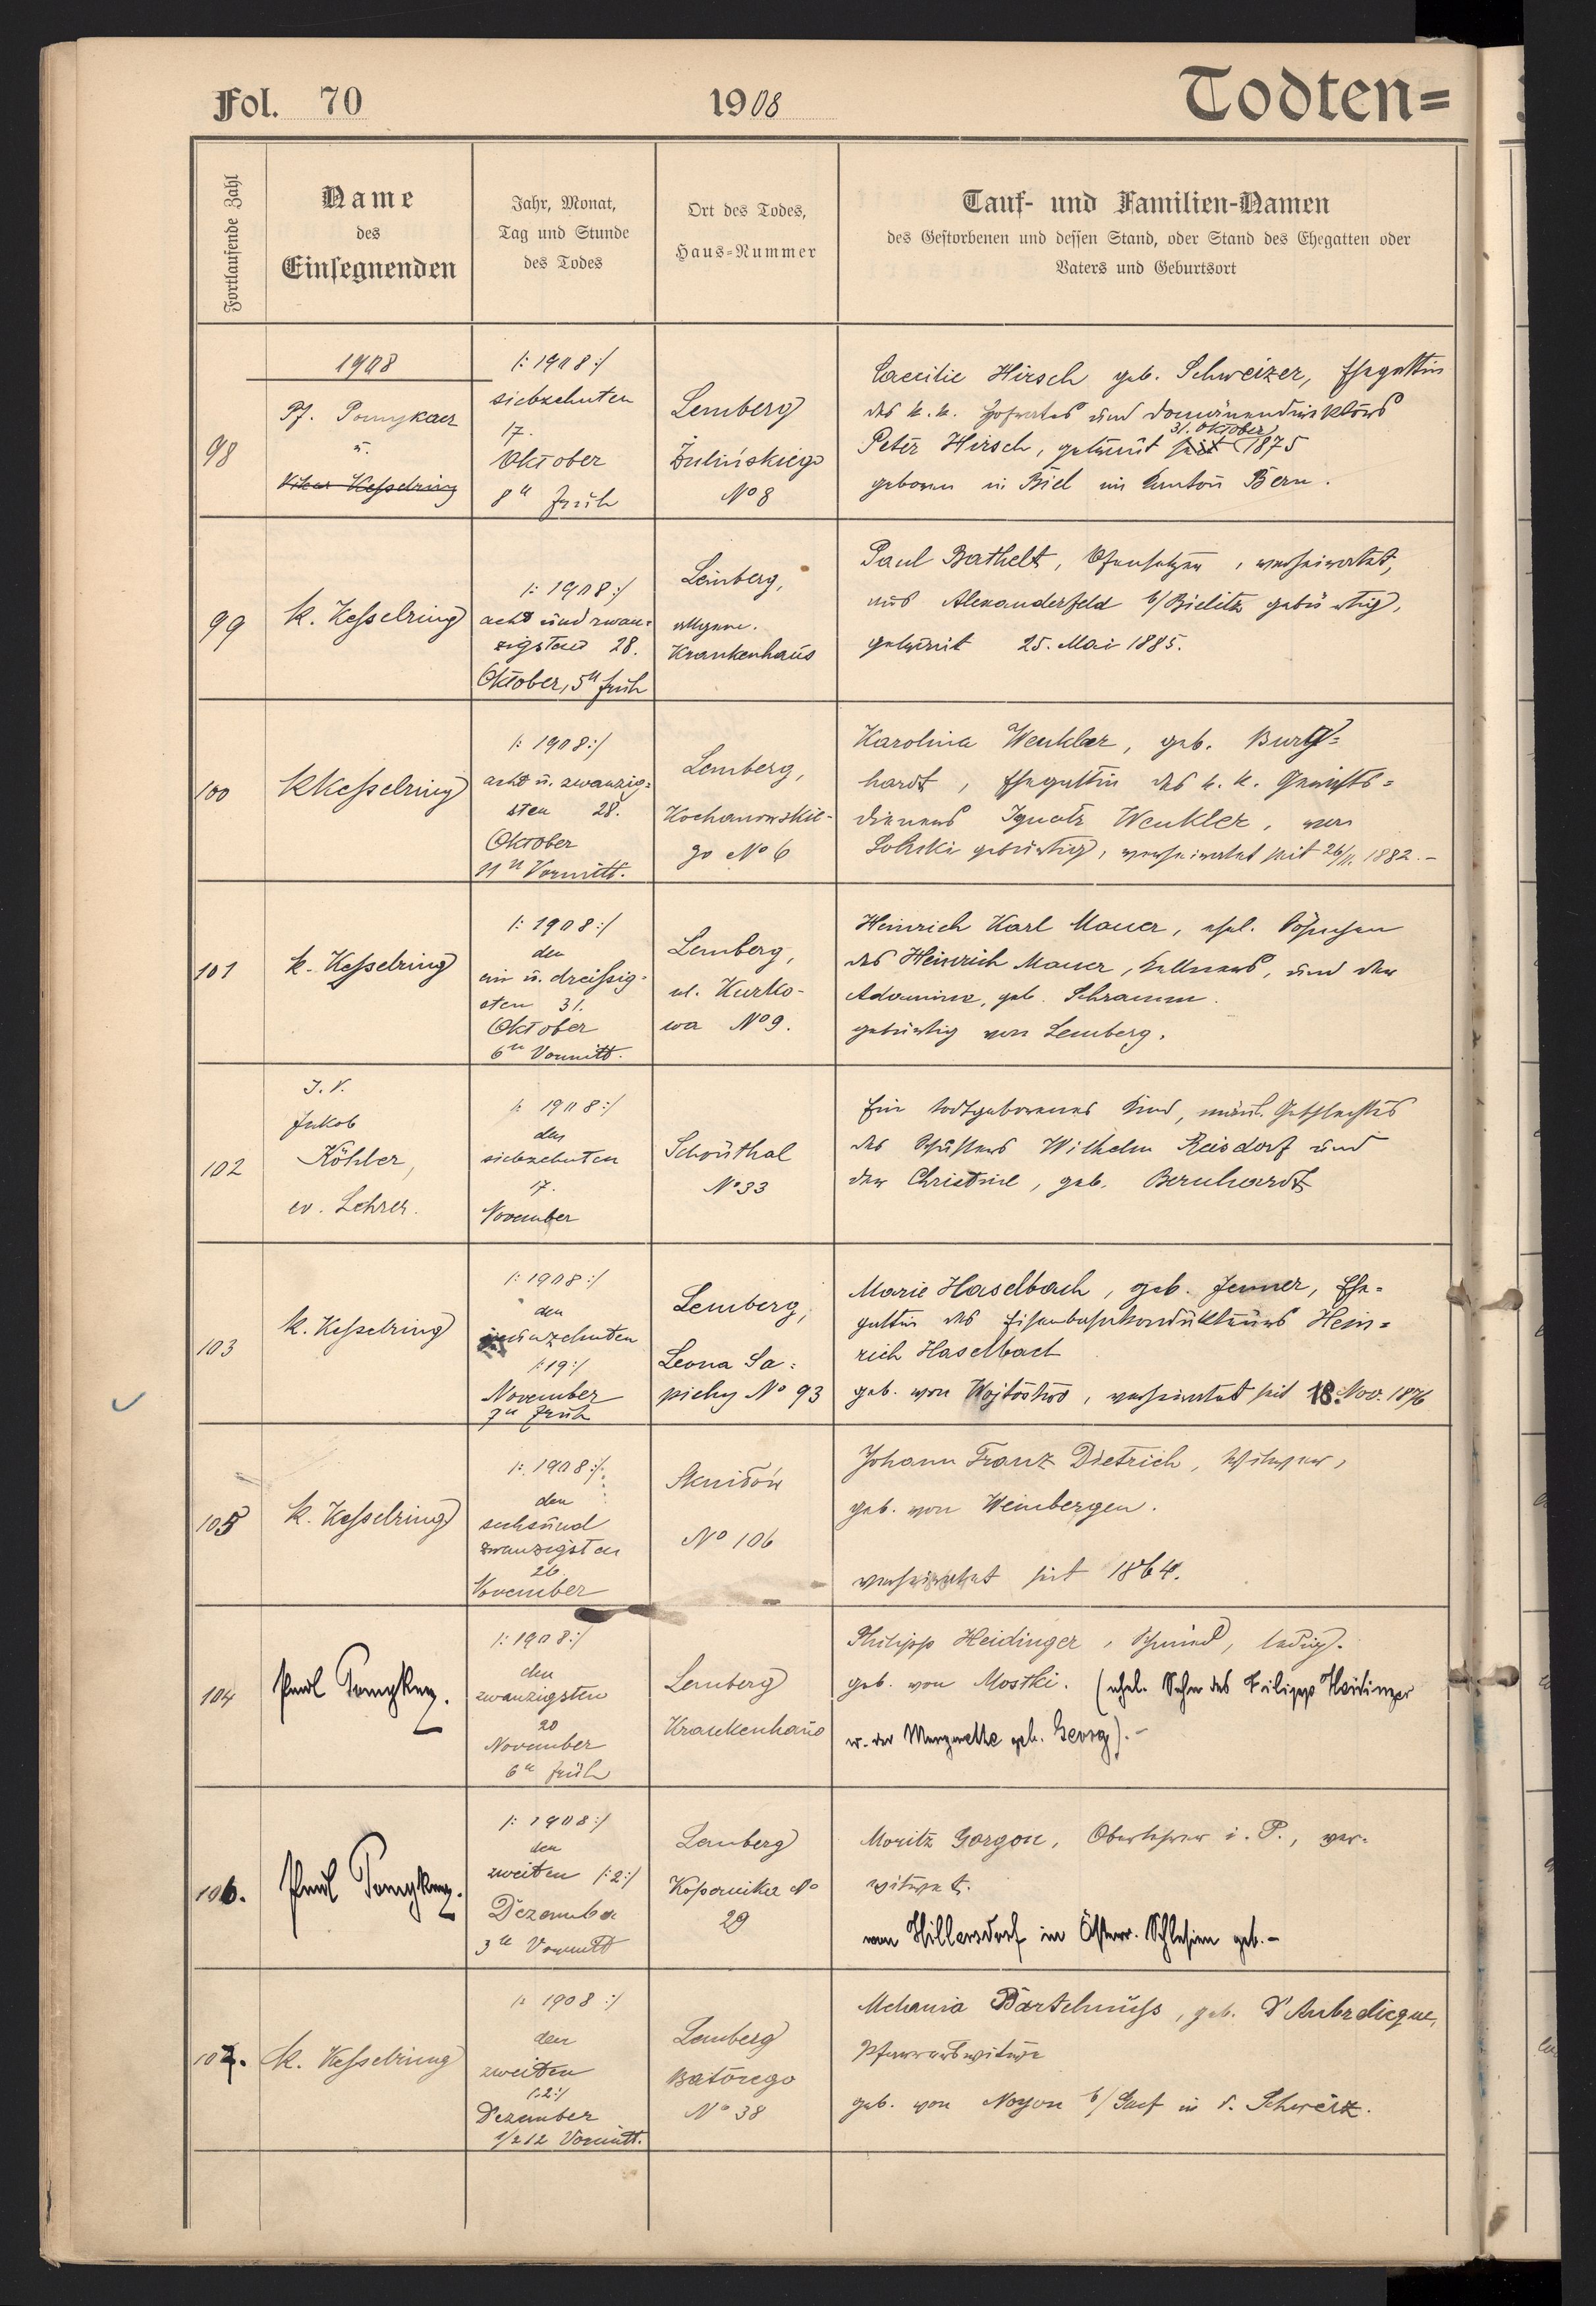 Fol. 70
1908
Todten=
Fortlaufende Zahl
Name
des
Einsegnenden
Jahr, Monat,
Tag und Stunde
des Todes
Ort des Todes,
Haus-Nummer
Tauf- und Familien-Namen
des Gestorbenen und dessen Stand, oder Stand des Ehegatten oder
Vaters und Geburtsort
98
1908
Pf. Pomykacz
u.
Vikar Kesselring
/: 1908 :/
siebzehnten
17.
Oktober
8 u früh
Lemberg
Żulińskiego
No 8
Caecilie Hirsch geb. Schweizer, Ehegattin
des k. k. Hofrates und Domänendirektors
31. Oktober
Peter Hirsch, getraut seit 1875
geboren in Biel im Kanton Bern.
99
K. Kesselring
/: 1908 :/
acht und zwan=
zigsten 28.
Oktober, 5 u früh
Lemberg,
allgem.
Krankenhaus
Paul Bathelt, Ofensetzer, verheiratet,
aus Alexanderfeld b/Bielitz gebürtig,
getraut 25. Mai 1885.
100
KKesselring
/: 1908 :/
acht u. zwanzig=
sten 28.
Oktober
11 u Vormitt.
Lemberg,
Kochanowskie-
go No 6
Karolina Wenkler, geb. Burg=
hardt, Ehegattin des k. k. Gerichts=
dieners Ignatz Wenkler, von
gebürtig, verheiratet seit 26/11. 1882.-
101
K. Kesselring
/: 1908 :/
den
ein u. dreißig=
sten 31.
Oktober
6 u Vormitt.
Lemberg,
ul. Kurko-
wa No 9.
Heinrich Karl Mauer, ehel. Söhnchen
des Heinrich Mauer, Kellners, und der
geb. Schramm.
gebürtig von Lemberg.
102
I. V.
Jakob
Köhler,
ev. Lehrer.
/: 1908 :/
den
siebzehnten
17.
November
Schönthal
No 33
Ein todtgeborenes Kind, männl. Geschlechtes
des Schusters Wilhelm Reisdorf und
der Christine, geb. Bernhardt
103
K. Kesselring
/: 1908 :/
den
neunzehnten
/: 19 :/
November
7 u früh
Lemberg,
Leona Sa=
piehy No 93
Marie Haselbach, geb. Jenner, Ehe=
gattin des Eisenbahnkondukteurs Hein=
rich Haselbach
geb. von Wojtostwo, verheiratet seit 18. Nov. 1876
105
K. Kesselring
/: 1908 :/
den
sechsund
zwanzigsten
26
November
Skniłów
No 106
Johann Franz Dietrich, Witwer,
geb. von Weinbergen.
verheiratet seit 1864.
104
Paul Pomykacz.
/: 1908 :/
den
zwanzigsten
20
November
6 u früh
Lemberg
Krankenhaus
Philipp Heidinger, Schmied, ledig.
geb. von Mostki. (ehel. Sohn des Filipp Heidinger
u. der Margarethe geb. Georg).-
106.
Paul Pomykacz.
/: 1908 :/
den
zweiten /: 2 :/
Dezember
3 u Vormitt
Lemberg
Kopernika No
29
Moritz Gorgon, Oberlehrer i. P., ver-
witwet.
von Hillersdorf in Österr. Schlesien geb.-
107.
K. Kesselring
/: 1908 :/
den
zweiten
/: 2 :/
Dezember
1/2 12 Vormitt.
Lemberg
Batorego
No 38
Melania Bartelmuss, geb. D'Aubrelicque,
Pfarrerswitwe
geb. von Noyon b/ Genf in d. Schweiz.